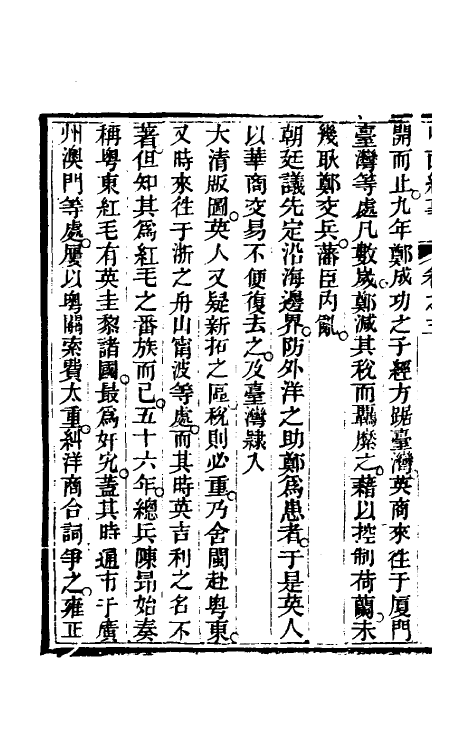 中西紀事 卷之三
開而止九年鄭成功之子經方踞臺灣英商來往于厦門
臺灣等處凡數歲鄭減其稅而羈縻之藉以控制荷蘭未
幾耿鄭交兵藩臣內亂
朝廷議先定沿海邊界防外洋之助鄭爲患者于是英人
以華商交易不便復去之及臺灣隸入
大清版圖英人又疑新拓之區稅則必重乃舍閩赴粵東
又時來往于浙之舟山甯波等處而其時英吉利之名不
著但知其爲紅毛之番族而已五十六年總兵陳昻始奏
稱粵東紅毛有英圭黎諸國最爲奸宄蓋其時通市于廣
州澳門等處屢以粵關索費太重糾洋商合詞爭之雍正